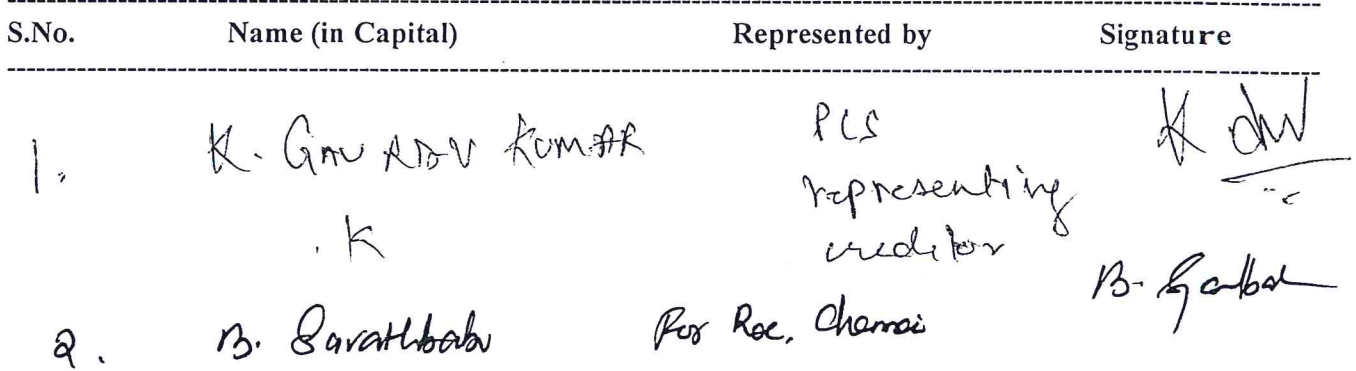 S.No. Name (in Capital) Represented by Signature
1. K. GAURAV KUMAR PCS
representing
. K creditor
2. B. Sarathbabu For RoC, Chennai